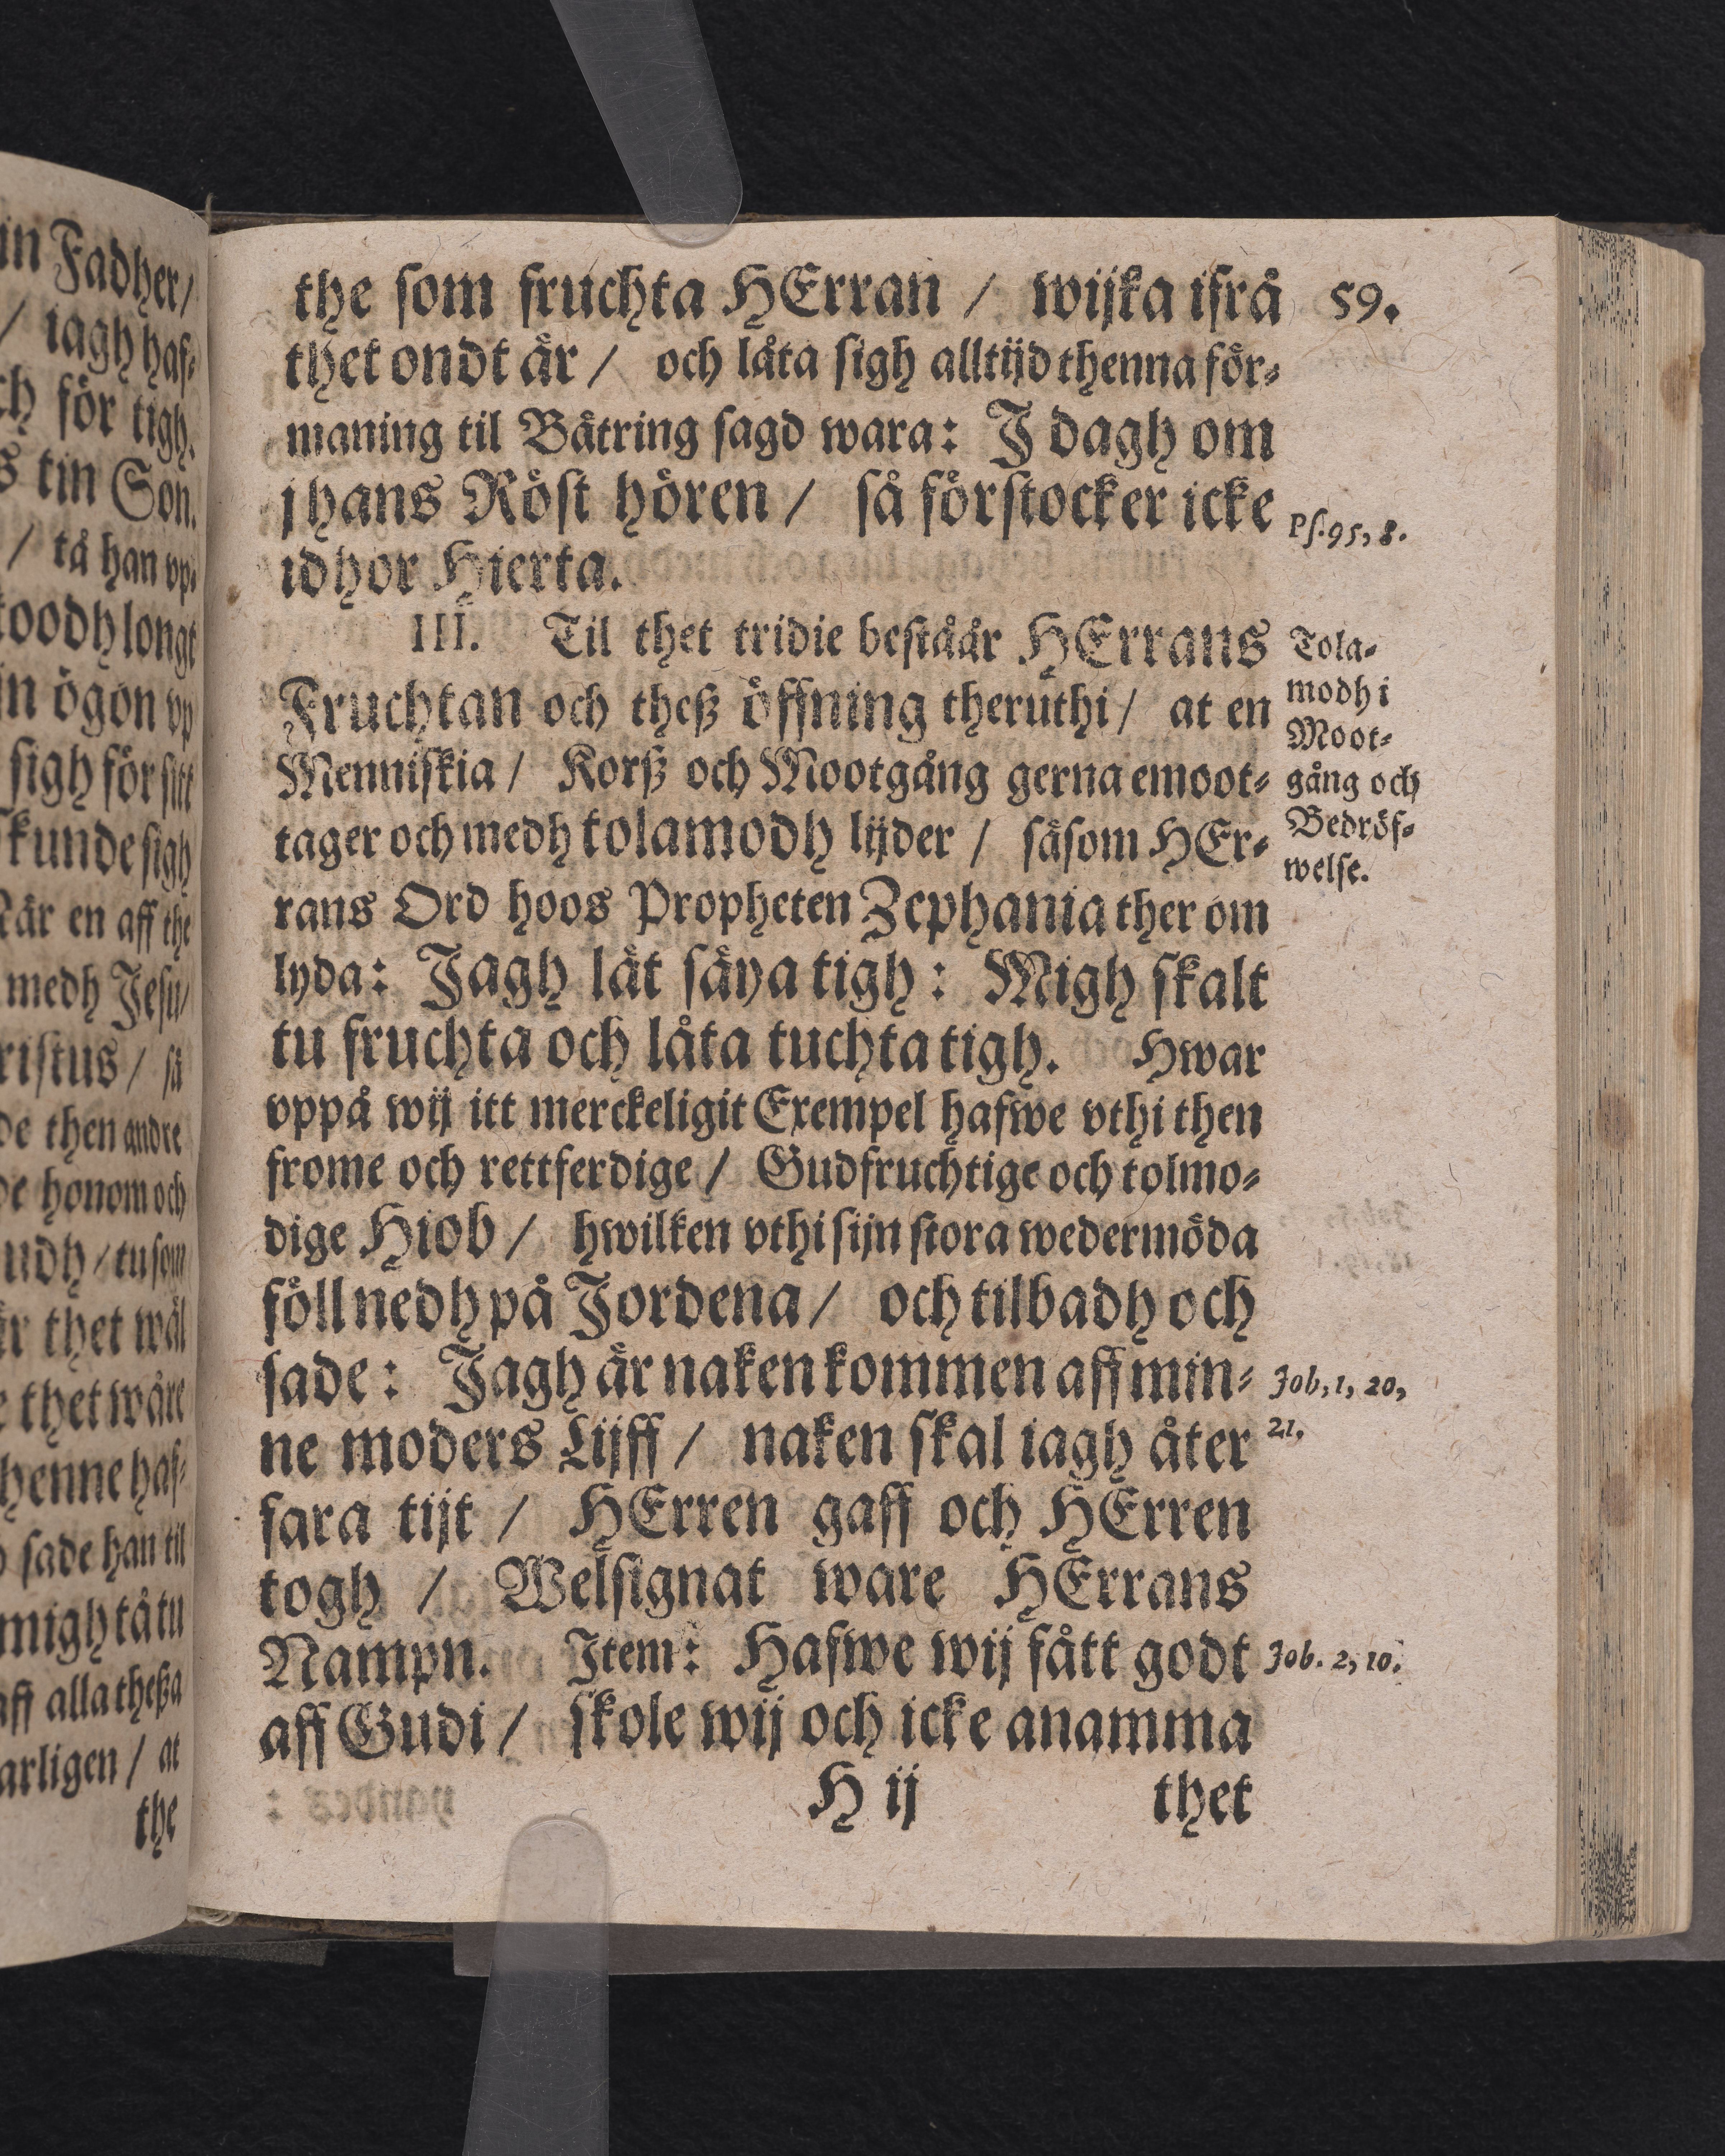 in Fadher/
/ iagh haf-
ch för tigh.
s tin Son.
/ tå han vp-
toodh longt
in ögon vp
sigh för sitt
kunde sigh
När en aff the
medh Jesu/
ristus / så
de then andre
de honom och
udh / tu som
är thet wäl
e thet wåre
henne haf-
sade han til
migh tå tu
aff alla theßa
arligen / at
the
the som fruchta HErran / wijka ifrå 59.
thet ondt är / och låta sigh alltijd thenna för-
maning til Bätring sagd wara: J dagh om
j hans Röst hören / så förstocker icke Ps. 95, 8.
idhor Hierta.
III. Til thet tridie beståår HErrans
Fruchtan och theß öffning theruthi / at en
Menniskia / Korß och Mootgång gerna emoot-
tager och medh tolamodh lijder / såsom HEr-
rans Ord hoos Propheten Zephania ther om
lyda: Jagh lät säya tigh: Migh skalt
tu fruchta och låta tuchta tigh. Hwar
vppå wij itt merckeligit Exempel hafwe vthi then
frome och rettferdige / Gudfruchtige och tolmo-
dige Hiob / hwilken vthi sijn stora wedermöda
föll nedh på Jordena / och tilbadh och
sade: Jagh är naken kommen aff min-
ne moders Lijff / naken skal iagh åter
fara tijt / HErren gaff och HErren
togh / Welsignat ware HErrans
Nampn. Item: Hafwe wij fått godt
aff Gudi / skole wij och icke anamma
H ij thet
Tola-
modh i
Moot-
gång och
Bedröf-
welse.
Job, 1, 20,
21.
Job. 2, 10.